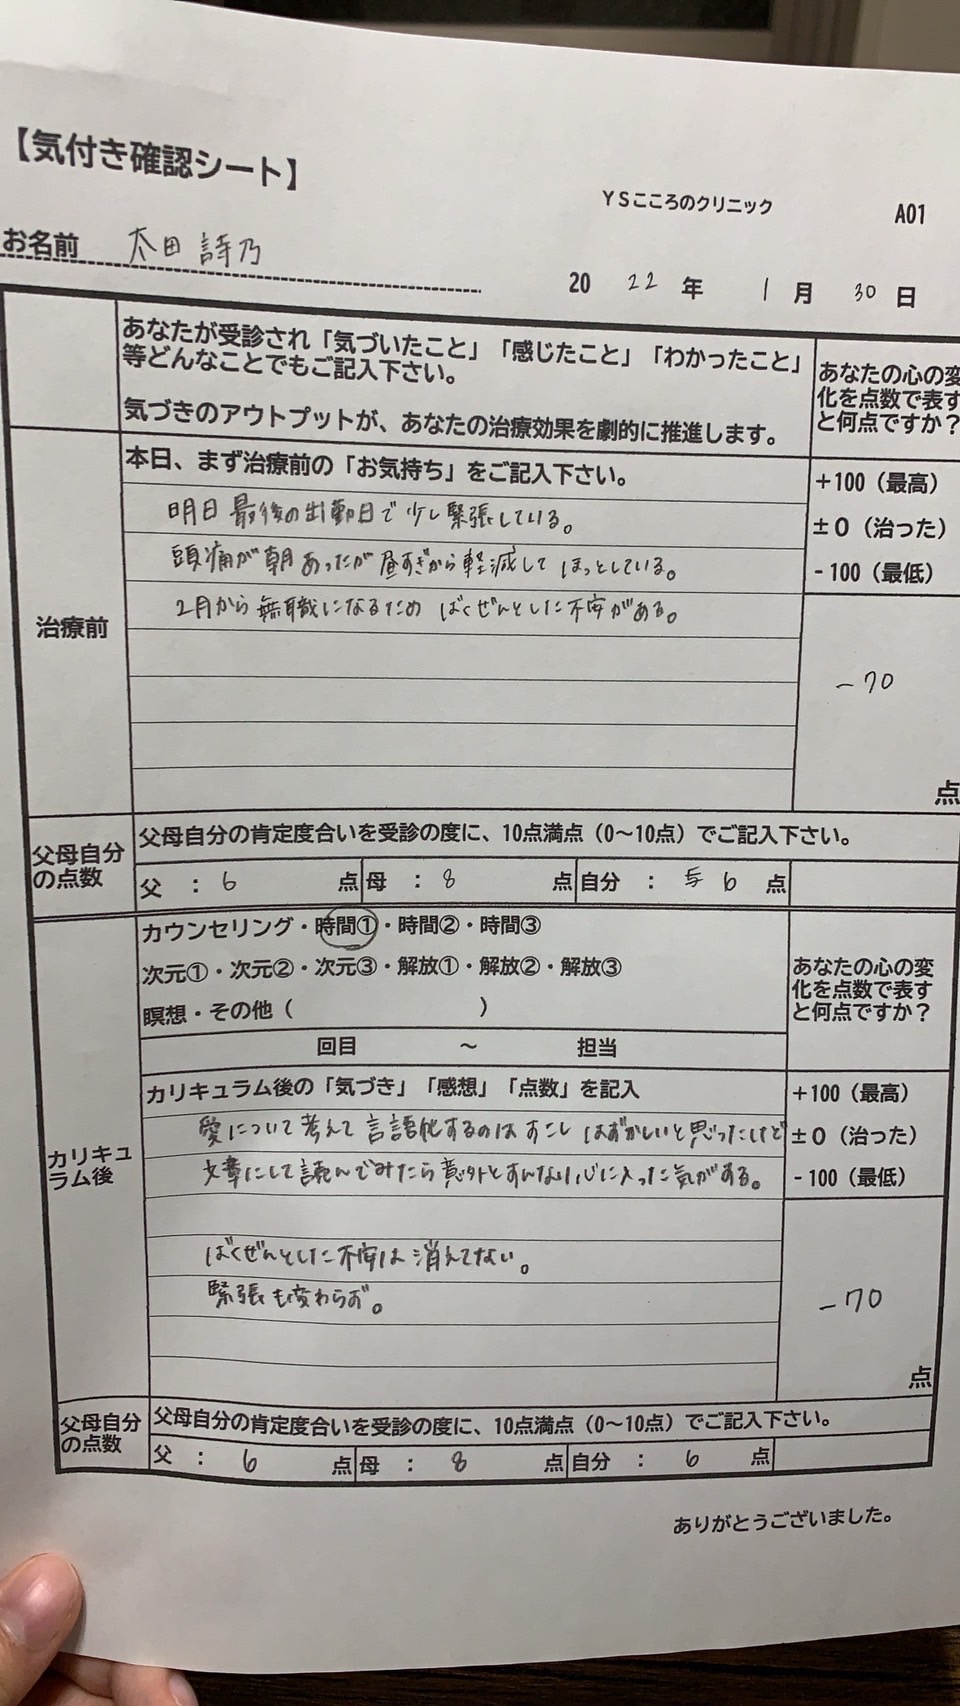 【気付き確認シート】
YSこころのクリニック A01
お名前 太田詩乃
2022年 1月 30日
あなたが受診され「気づいたこと」「感じたこと」「わかったこと」
等どんなことでもご記入下さい。
気づきのアウトプットが、あなたの治療効果を劇的に推進します。
あなたの心の変
化を点数で表す
と何点ですか?
治療前
本日、まず治療前の「お気持ち」をご記入下さい。
明日最後の出勤日で少し緊張している。
頭痛が朝あったが昼すぎから軽減してほっとしている。
2月から無職になるためばくぜんとした不安がある。
+100(最高)
±0(治った)
-100(最低)
-70
点
父母自分
の点数
父母自分の肯定度合いを受診の度に、10点満点(0~10点)でご記入下さい。
父 : 6 点 母 : 8 点 自分 : 6 点
カリキュ
ラム後
カウンセリング・時間①・時間②・時間③
次元①・次元②・次元③・解放①・解放②・解放③
瞑想・その他( )
回目 ~ 担当
あなたの心の変
化を点数で表す
と何点ですか?
カリキュラム後の「気づき」「感想」「点数」を記入
愛について考えて言語化するのはすこしはずかしいと思ったけど
文章にして読んでみたら意外とすんなり心に入った気がある。
ばくぜんとした不安は消えてない。
緊張も変わらず。
+100(最高)
±0(治った)
-100(最低)
-70
点
父母自分
の点数
父母自分の肯定度合いを受診の度に、10点満点(0~10点)でご記入下さい。
父 : 6 点 母 : 8 点 自分 : 6 点
ありがとうございました。